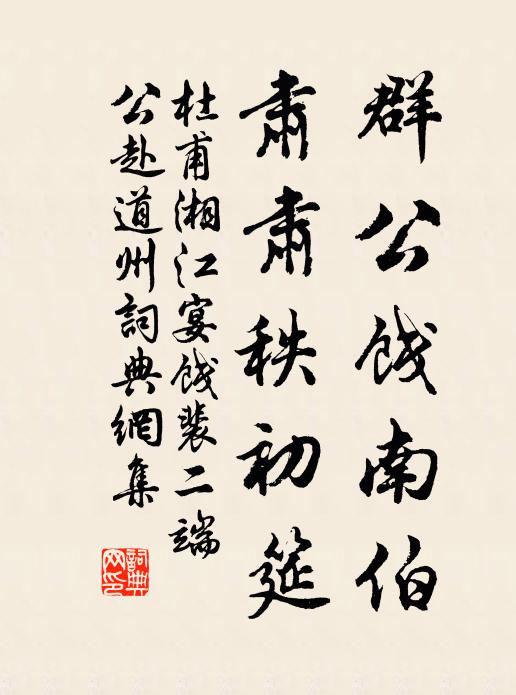 群公餞南伯
肅肅秩初筵
杜甫湘江宴餞裴二端
公赴道州詞典網集
詞典網印